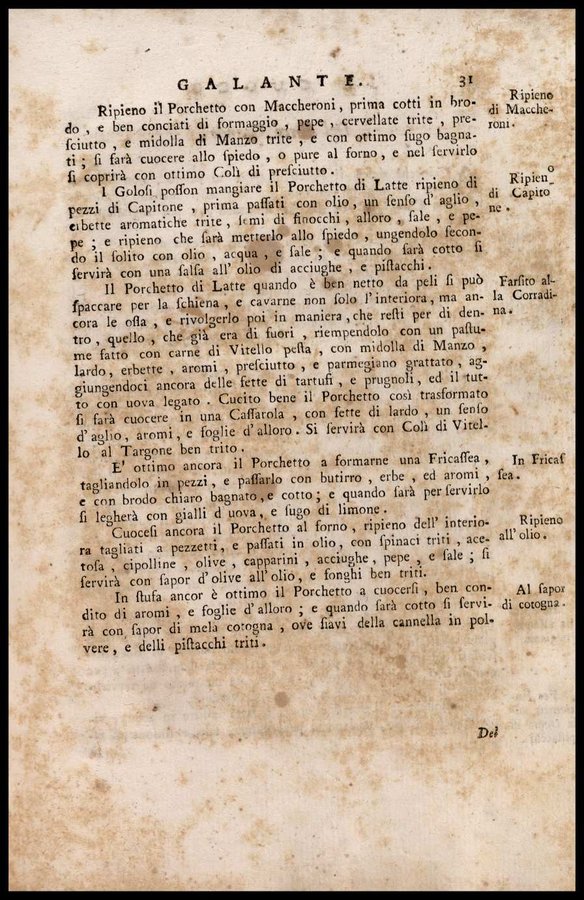 GALANTE. 31
Ripieno il Porchetto con Maccheroni, prima cotti in bro-
do, e ben conciati di formaggio, pepe, cervellate trite, pre-
ſciutto, e midolla di Manzo trite, e con ottimo ſugo bagna-
ti; ſi farà cuocere allo ſpiedo, o pure al forno, e nel ſervirlo
ſi coprirà con ottimo Colì di preſciutto.
Ripieno
di Macche-
roni.
I Goloſi poſſon mangiare il Porchetto di Latte ripieno di
pezzi di Capitone, prima paſſati con olio, un ſenſo d'aglio,
erbette aromatiche trite, ſemi di finocchi, alloro, ſale, e pe-
pe; e ripieno che ſarà metterlo allo ſpiedo, ungendolo ſecon-
do il ſolito con olio, acqua, e ſale; e quando ſarà cotto ſi
ſervirà con una ſalſa all'olio di acciughe, e piſtacchi.
Ripieno
di Capito-
ne.
Il Porchetto di Latte quando è ben netto da peli ſi può
ſpaccare per la ſchiena, e cavarne non ſolo l'interiora, ma an-
cora le oſſa, e rivolgerlo poi in maniera, che reſti per di den-
tro, quello, che già era di fuori, riempendolo con un paſtu-
me fatto con carne di Vitello peſta, con midolla di Manzo,
lardo, erbette, aromi, preſciutto, e parmegiano grattato, ag-
giungendoci ancora delle fette di tartufi, e prugnoli, ed il tut-
to con uova legato. Cucito bene il Porchetto così trasformato
ſi farà cuocere in una Caſſarola, con fette di lardo, un ſenſo
d'aglio, aromi, e foglie d'alloro. Si ſervirà con Colì di Vitel-
lo al Targone ben trito.
Farſito al-
la Corradi-
na.
E' ottimo ancora il Porchetto a formarne una Fricaſſea,
tagliandolo in pezzi, e paſſarlo con butirro, erbe, ed aromi,
e con brodo chiaro bagnato, e cotto; e quando ſarà per ſervirlo
ſi legherà con gialli d'uova, e ſugo di limone.
In Fricaſ
ſea.
Cuoceſi ancora il Porchetto al forno, ripieno dell'interio-
ra tagliati a pezzetti, e paſſati in olio, con ſpinaci triti, ace-
toſa, cipolline, olive, capparini, acciughe, pepe, e ſale; ſi
ſervirà con ſapor d'olive all'olio, e fonghi ben triti.
Ripieno
all'olio.
In ſtufa ancor è ottimo il Porchetto a cuocerſi, ben con-
dito di aromi, e foglie d'alloro; e quando ſarà cotto ſi ſervi-
rà con ſapor di mela cotogna, ove ſiavi della cannella in pol-
vere, e delli piſtacchi triti.
Al ſapor
di cotogna.
Del